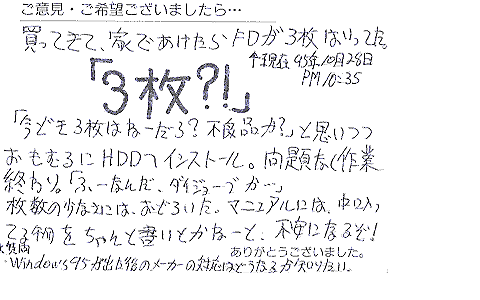 ご意見・ご希望ございましたら…
買ってきて、家であけたらFDが3枚はいってた
↑現在95年10月28日
PM10:35
「3枚?!」
「今どき3枚はねーだろ?不良品か?」と思いつつ
おもむろにHDDへインストール。問題なく作業
終わり。「ふーなんだ、ダイジョーブか…」
枚数の少なさには、おどろいた。マニュアルには、中に入っ
てる物をちゃんと書いとかなーと、不安になるぞ!
ありがとうございました。
・Windows95が出た後のメーカーの対応はどうなるか知りたい。